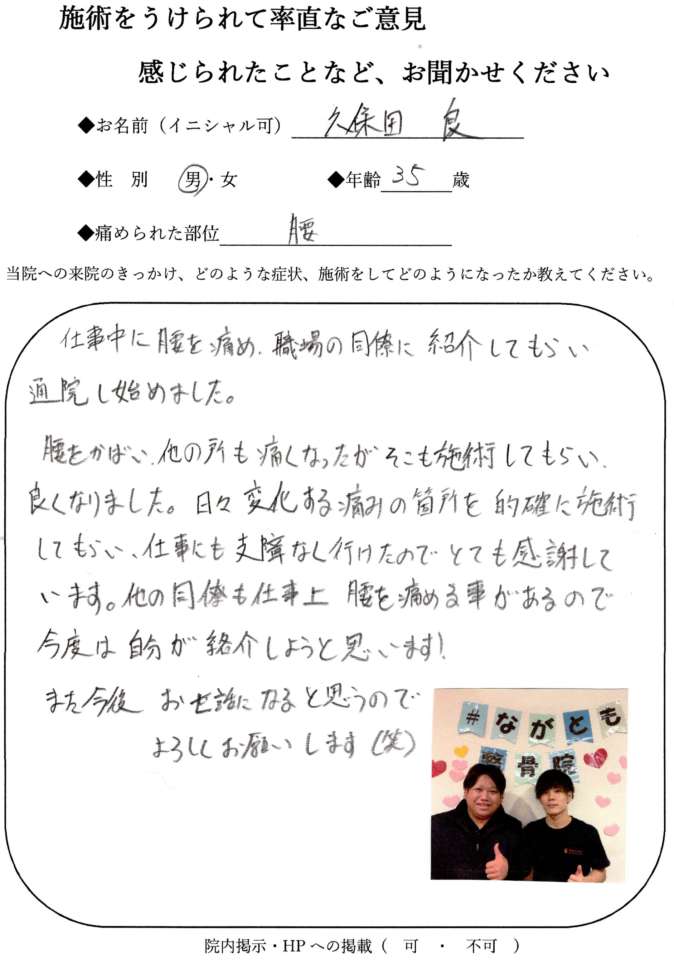 施術をうけられて率直なご意見
感じられたことなど、お聞かせください
◆お名前（イニシャル可） 久保田 良
◆性 別 男・女 ◆年齢 35 歳
◆痛められた部位 腰
当院への来院のきっかけ、どのような症状、施術をしてどのようになったか教えてください。
仕事中に腰を痛め、職場の同僚に紹介してもらい
通院し始めました。
腰をかばい、他の所も痛くなったがそこも施術してもらい、
良くなりました。日々変化する痛みの箇所を的確に施術
してもらい、仕事にも支障なく行けたのでとても感謝して
います。他の同僚も仕事上腰を痛める事があるので
今度は自分が紹介しようと思います!
また今後お世話になると思うので
よろしくお願いします(笑)
#ながとも
整骨院
院内掲示・HPへの掲載（ 可 ・ 不可 ）